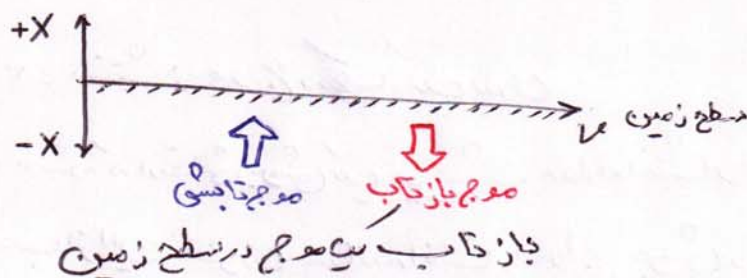 +X
سطح زمین
y
-X
موج تابشی
موج بازتاب
بازتاب یک موج در سطح زمین